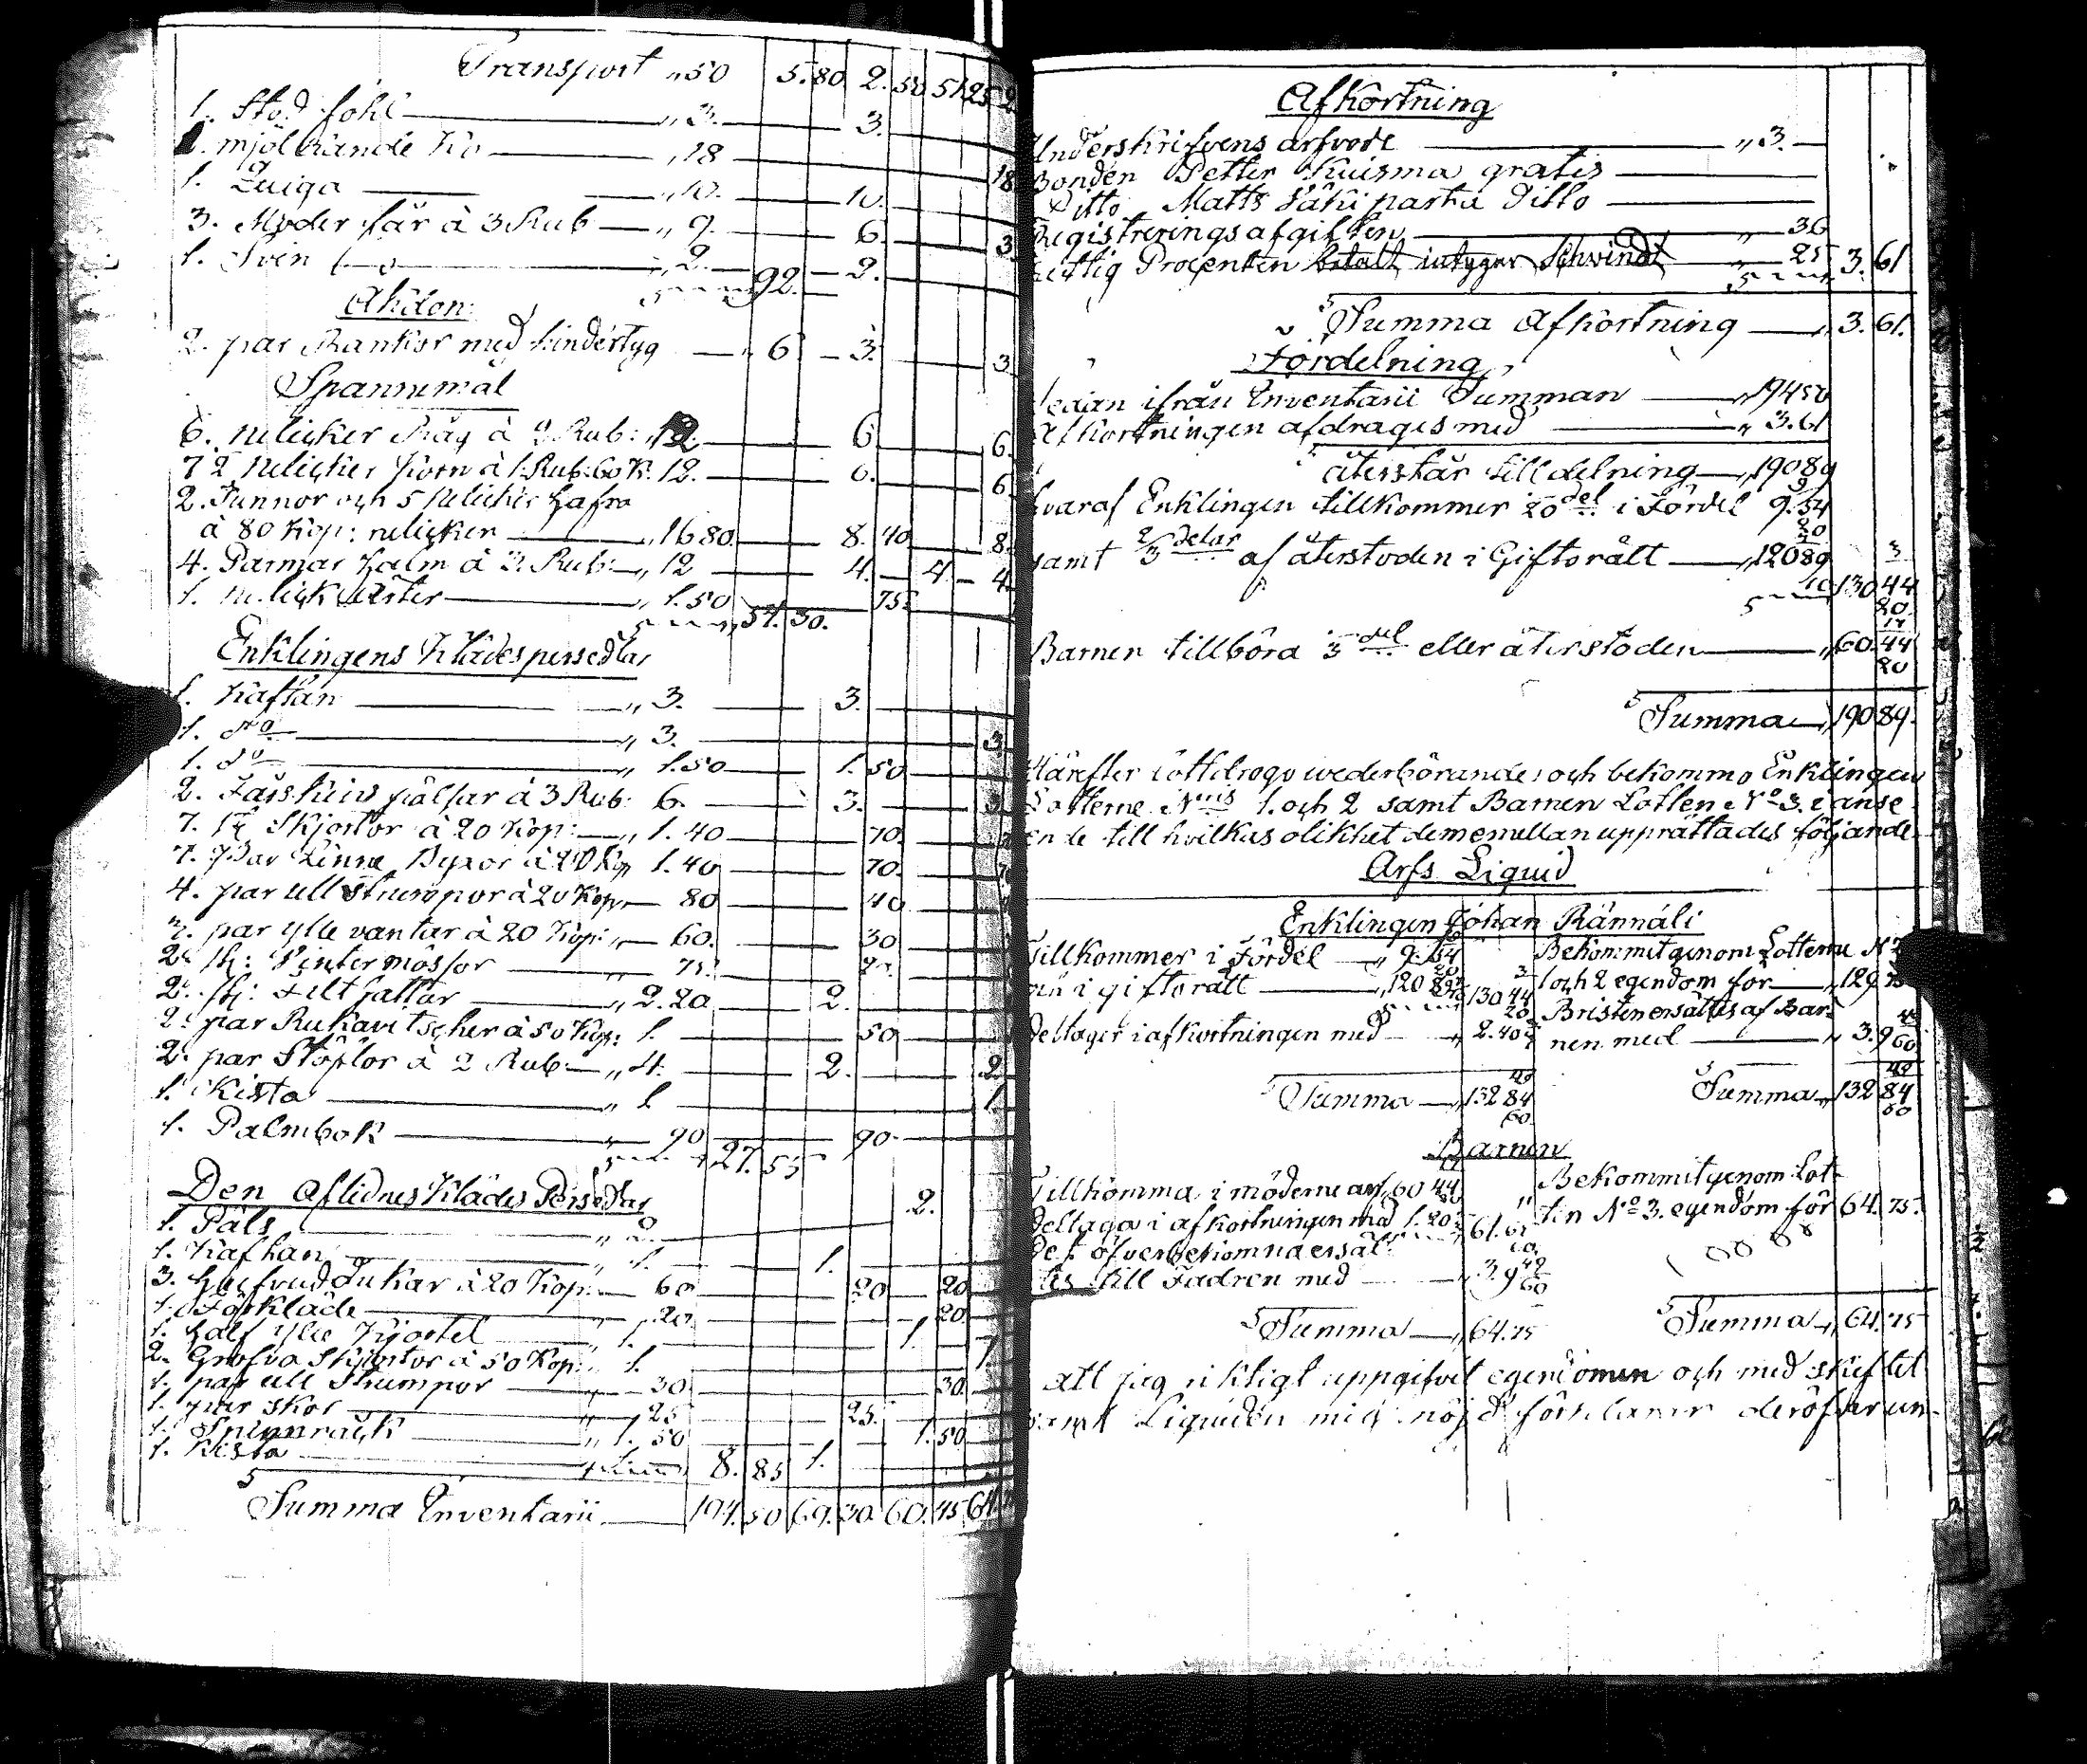 Transport „ 50 5. 80. 2. 50 51. 25
1. Stod fohl „ 3. 3.
1. mjölkande Ko „ 18 18
1. Quiga „ 10. 10.
3. Moder får à 3 Rub „ 9. 6. 3
1. Svin „ 2. 92. 2.
Åkdon:
2. par Rankor med hindertyg „ 6 3. 3
Spanmål
6. neliker Råg à 2 Rub: „ 12. 6 6.
7½ neliker Korn à 1 Rub: 60 K: 12. 6. 6
2. Tunnor och 5 neliker hafra
à 80 Kop: neliken „ 16 80. 8. 40 8.
4. Parmar halm à 3. Rub: „ 12 4. 4. 4
1. nelik Ärter „ 1. 50 54. 30. 75.
Enklingens Klädespersedlar
1. Kaftan „ 3. 3.
1. do „ 3. 3
1. do „ 1. 50 1. 50
2. Fårskins pälsar à 3 Rub: 6. 3. 3
7. st. Skjortor à 20 Kop: „ 1. 40 70.
7. Par Linne Byxor à 20 Kop 1. 40 70.
4. par ull strumpor à 20 Kop, 80 40
3. par ylle vantar à 20 Kop: „ 60. 30
2. st: Vintermössor 75.
2. st: Filt hattar „ 2. 20. 2.
2. par Rukavitscher à 50 Kop: 1. 50
2. par Stöflor à 2 Rub: „ 4. 2. 2
1. Kista „ 1. 1.
1. Psalmbok 90 27. 55 90.
Den Aflidnes Klädes Persedlar
1. Päls „ 2. 2.
1. Kaftan „ 1. 1.
3. hufvuddukar à 20 Kop: 60 20 20
1. Förkläde „ 20. 20.
1. half ylle Kjortel „ 1. 1.
2. Grofva Skjortor à 50 Kop: 1. 1.
1. par ull Strumpor 30 30.
1. par skor „ 25 25.
1. Spinnråck „ 1. 50 1. 50
1. Kista 8. 85 1.
Summa Inventarii 194. 50 69. 30. 60. 45 64.
Afkortning
Underskrifvens arfvode „ 3.
Bonden Petter Kuisma gratis
Ditto Matts Ditto
Registreringsafgiften „ 36
Fattig Procenten betalt intygar Schvindt „ 25 3. 61
Summa Afkortning „ 3. 61.
Fördelning
Sedan ifrån Inventarii Summan „ 194 50
Afkortningen afdrages med „ 3. 61
återstår till delning „ 190 89
hvaraf Enklingen tillkommer 20 del i Fördel 9. 54 9/20
samt 2/3 delar af återstoden i Giftorätt „ 120 89 130 44
Barnen tillhöra 3 del eller återstoden „ 60. 44 17/20
Summa „ 190 89.
Härefter lottdrogo wederbörande och bekommo Enklingen
Lotterne Nris 1. och 2 samt Barnen Lotten No 3. i anse
ende till hvilkas olikhet dememellan upprättades följande
Arfs Liquid
Enklingen Johan Rännäli
Tillkommer i Fördel „ 9. 54 Bekommit genom Lotterne No
och i giftorätt „ 120 89 130 44 1 och 2 egendom för 129
deltager i afkortningen med „ 2. 40 Bristen ersättes af Bar-
nen med „ 3. 9 49/60
Summa „ 132 84 49/60 Summa „ 132 84 49/60
Barnen
Tillkomma i möderne arf 60 44 Bekommit genom Lot-
deltaga i afkortningen med 1. 20 61. 65 ten No 3. egendom för 64. 75.
det öfverbekomna ersät-
tes till Fadren med „ 3. 9 49/60
Summa „ 64. 75 Summa „ 64. 75
Att jag riktigt uppgifvit egendomen och med skiftet
samt Liquiden mig nöjd förklarar deröfver un-